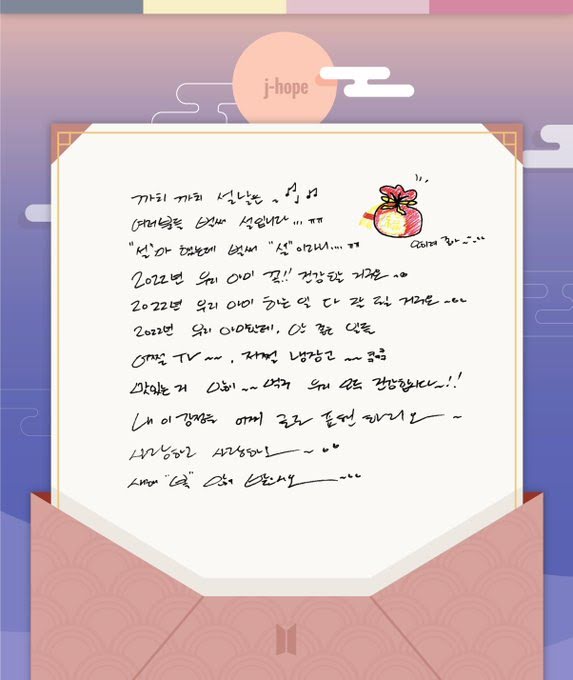 j-hope
까치 까치 설날은 ~
여러분들 벌써 설입니다... ㅠㅠ
"설"마 했는데 벌써 "설"이라니... ㅠㅠ
2022년 우리 아미 꼭!! 건강할 거구요 ~
2022년 우리 아미 하는 일 다 잘 될 거구요 ~
2022년 우리 아미한테, 안 좋은 일들
어쩔 TV ~~, 저쩔 냉장고 ~~ 쿸쿸
맛있는 거 많이 ~~ 먹구 우리 모두 건강합시다~!!
내 이 감정을 어찌 글로 표현하리오 ~
사랑하고 사랑하오 ~
새해 "복" 많이 받으시오 ~